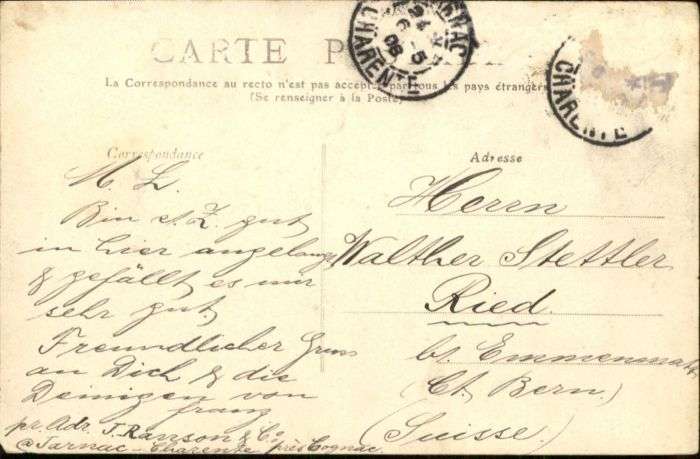 CARTE P
La Correspondance au recto n'est pas acceptée par tous les pays étrangers
(Se renseigner à la Poste)
GNAC
24
6 - 5
06
CHARENTE
CHARENTE
Correspondance
Adresse
M. L.
Bin s. Z. gut
in hier angelangt
& gefällt es mir
sehr gut
Freundlicher Gruss
an Dich & die
Deinigen von
franz
pr. Adr. J. Ranson & Co
@ Jarnac - Charente près Cognac
Herrn
Walther Stettler
Ried
br. Emmenmatt
(Ct. Bern.)
(Suisse.)